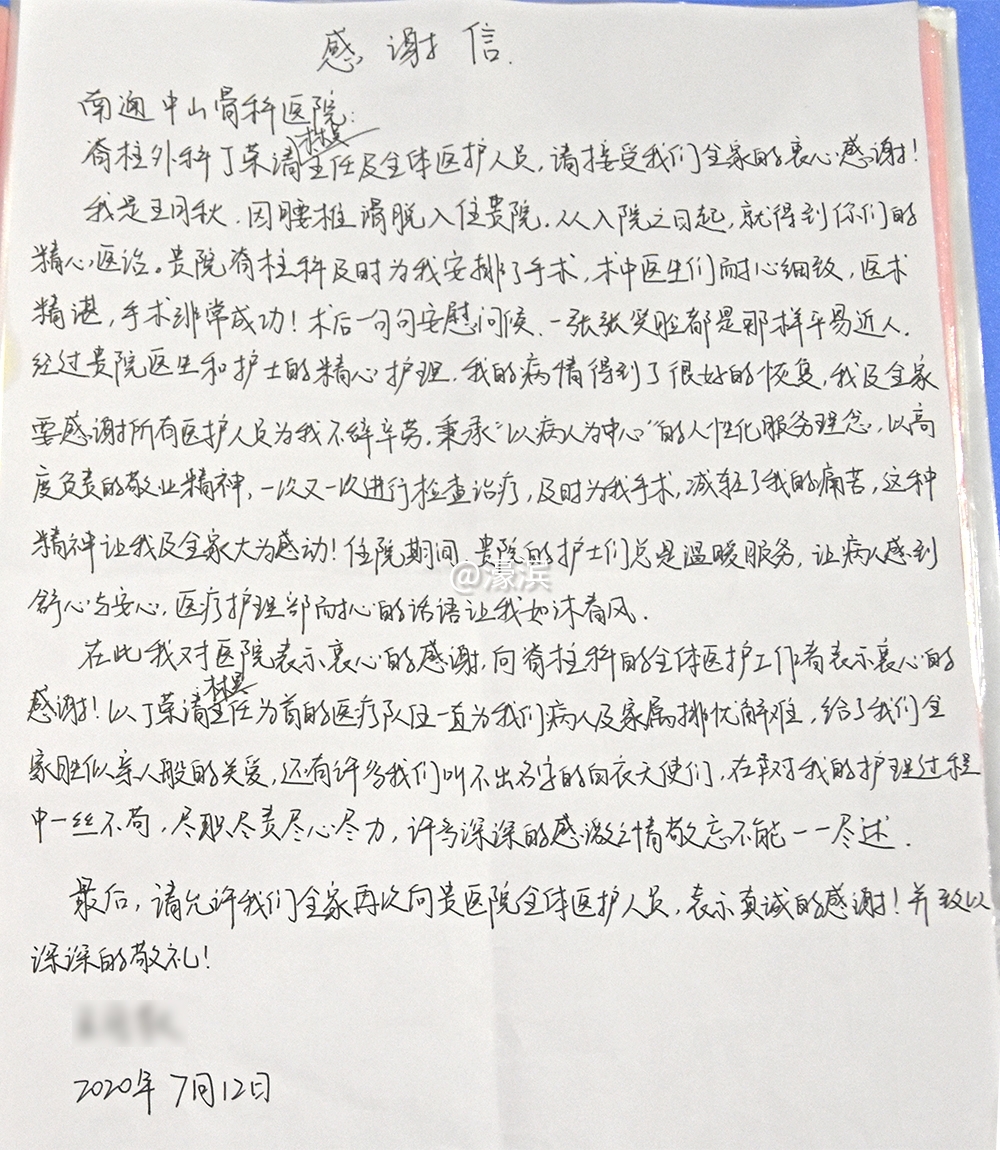 感谢信.
南通中山骨科医院:
林昊
脊柱外科丁荣清主任及全体医护人员,请接受我们全家的衷心感谢!
我是王月秋.因腰椎滑脱入住贵院.从入院之日起,就得到你们的
精心医治。贵院脊柱科及时为我安排了手术,术中医生们耐心细致,医术
精谌,手术非常成功!术后一句句安慰问侯.一张张笑脸都是那样平易近人.
经过贵院医生和护士的精心护理.我的病情得到了很好的恢复,我及全家
要感谢所有医护人员为我不辞辛劳.秉承"以病人为中心"的人性化服务理念,以高
度负责的敬业精神,一次又一次进行检查治疗,及时为我手术,减轻了我的痛苦,这种
精神让我及全家大为感动!住院期间.贵院的护士们总是温暖服务,让病人感到
@濠滨
舒心与安心,医疗护理部耐心的话语让我如沐春风.
在此我对医院表示衷心的感谢,向脊柱科的全体医护工作者表示衷心的
林昊
感谢!以丁荣清主任为首的医疗队伍一直为我们病人及家属排忧解难,给了我们全
家胜似亲人般的关爱,还有许多我们叫不出名字的白衣天使们,在对我的护理过程
中一丝不苟,尽职尽责尽心尽力,许多深深的感激之情敬忘不能一一尽述.
最后,请允许我们全家再次向贵医院全体医护人员,表示真诚的感谢!并致以
深深的敬礼!
2020年7月12日